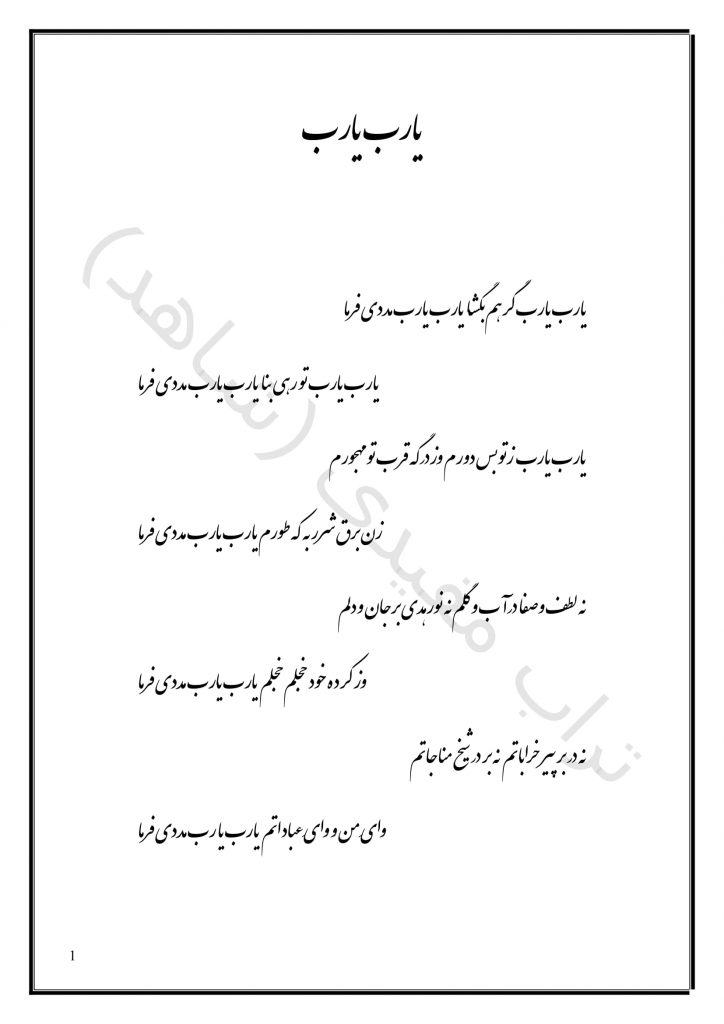 یارب یارب
یارب یارب گرهم بگشا یارب یارب مددی فرما
یارب یارب تو رهی بنما یارب یارب مددی فرما
یارب یارب ز تو بس دورم وز درگه قرب تو مهجورم
زن برق شرر به که طورم یارب یارب مددی فرما
نه لطف و صفا در آب و گلم نه نور هدی بر جان و دلم
وز کرده خود خجلم خجلم یارب یارب مددی فرما
نه در بر پیر خراباتم نه بر در شیخ مناجاتم
وای من و وای عباداتم یارب یارب مددی فرما
تراب مفیدی (شاهد)
1